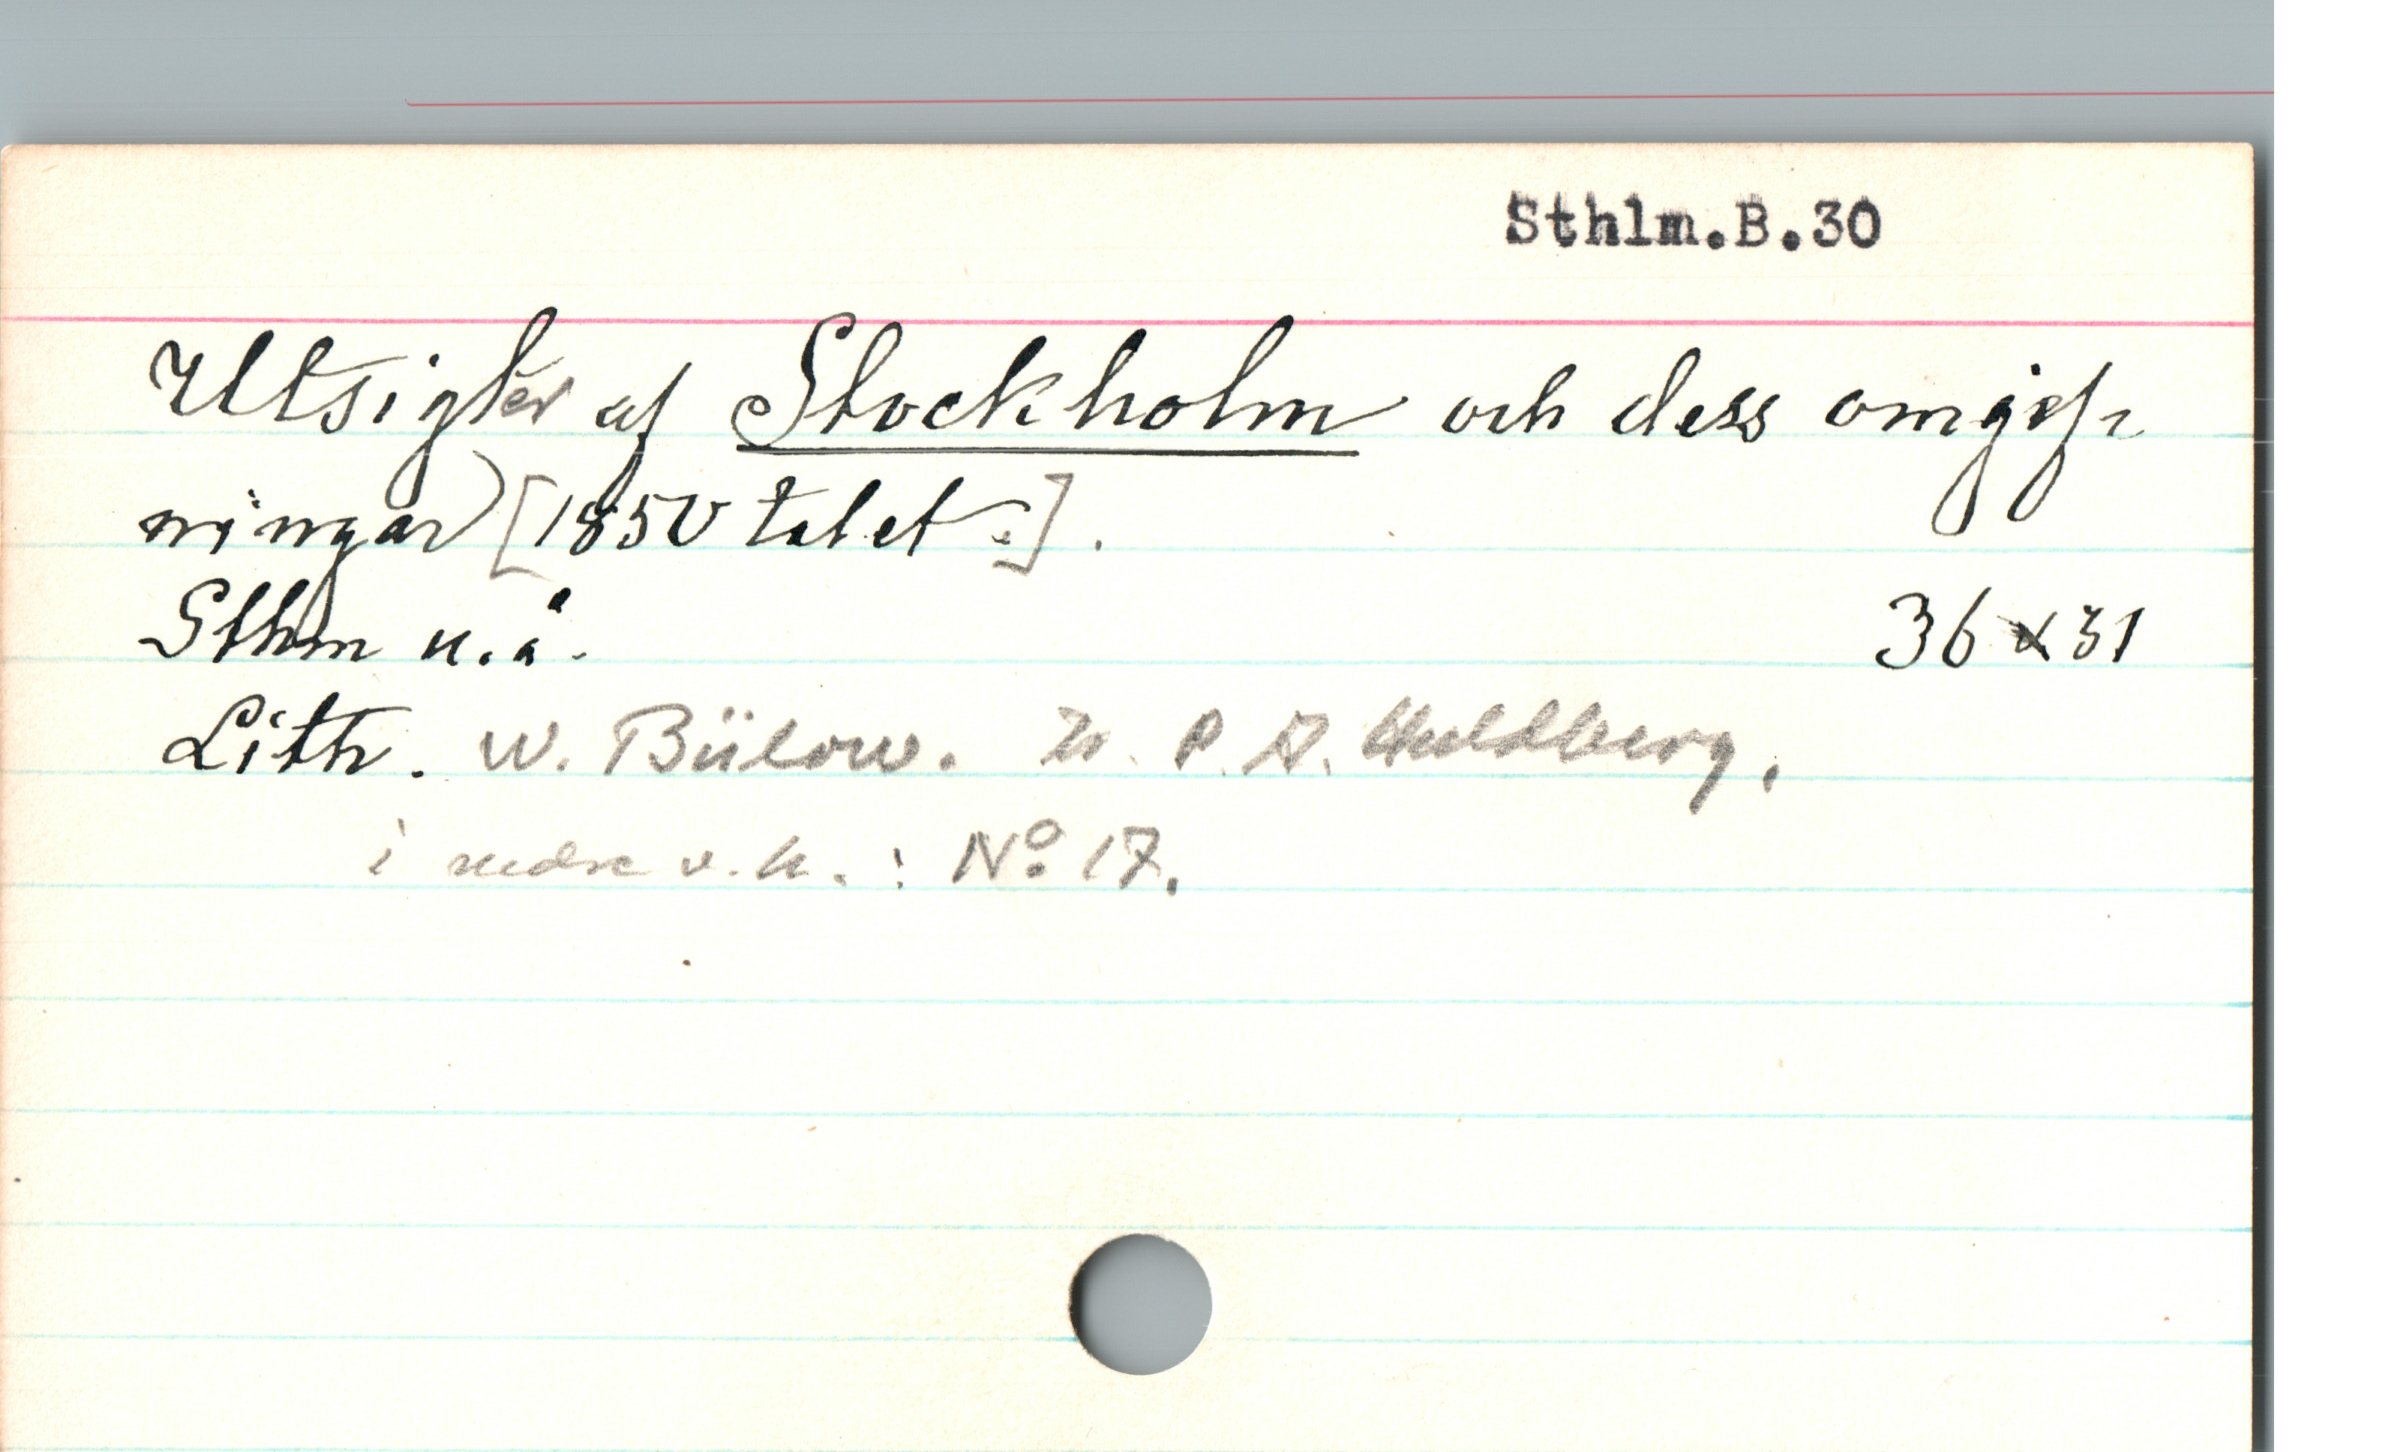 Sthlm.B.30
Utsigter af Stockholm och dess omgif-
ningar [1850 talet].
Sthm u.å. 36 x 31
Lith. W. Bülow. P. A. Huldberg.
i nedre v.h.: Nº 17.